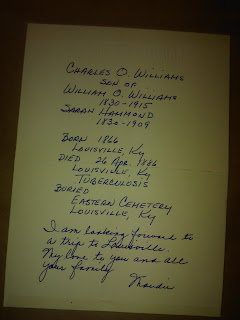 CHARLES O. WILLIAMS
SON OF
WILLIAM O. WILLIAMS
1830-1915
SARAH HAMMOND
1830-1909
BORN 1866
LOUISVILLE, KY
DIED 26 APR. 1886
LOUISVILLE, KY
TUBERCULOSIS
BURIED
EASTERN CEMETERY
LOUISVILLE, KY
I am looking forward to
a trip to Louisville.
My love to you and all
your family
Maudie